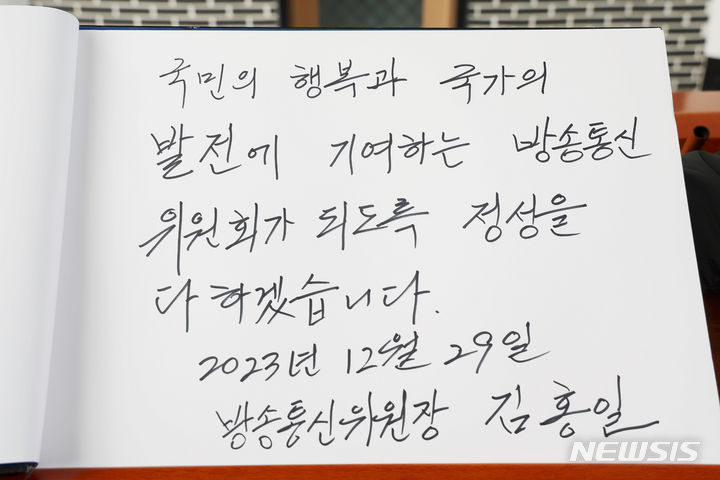 국민의 행복과 국가의
발전에 기여하는 방송통신
위원회가 되도록 정성을
다하겠습니다.
2023년 12월 29일
방송통신위원장 김홍일
NEWSIS